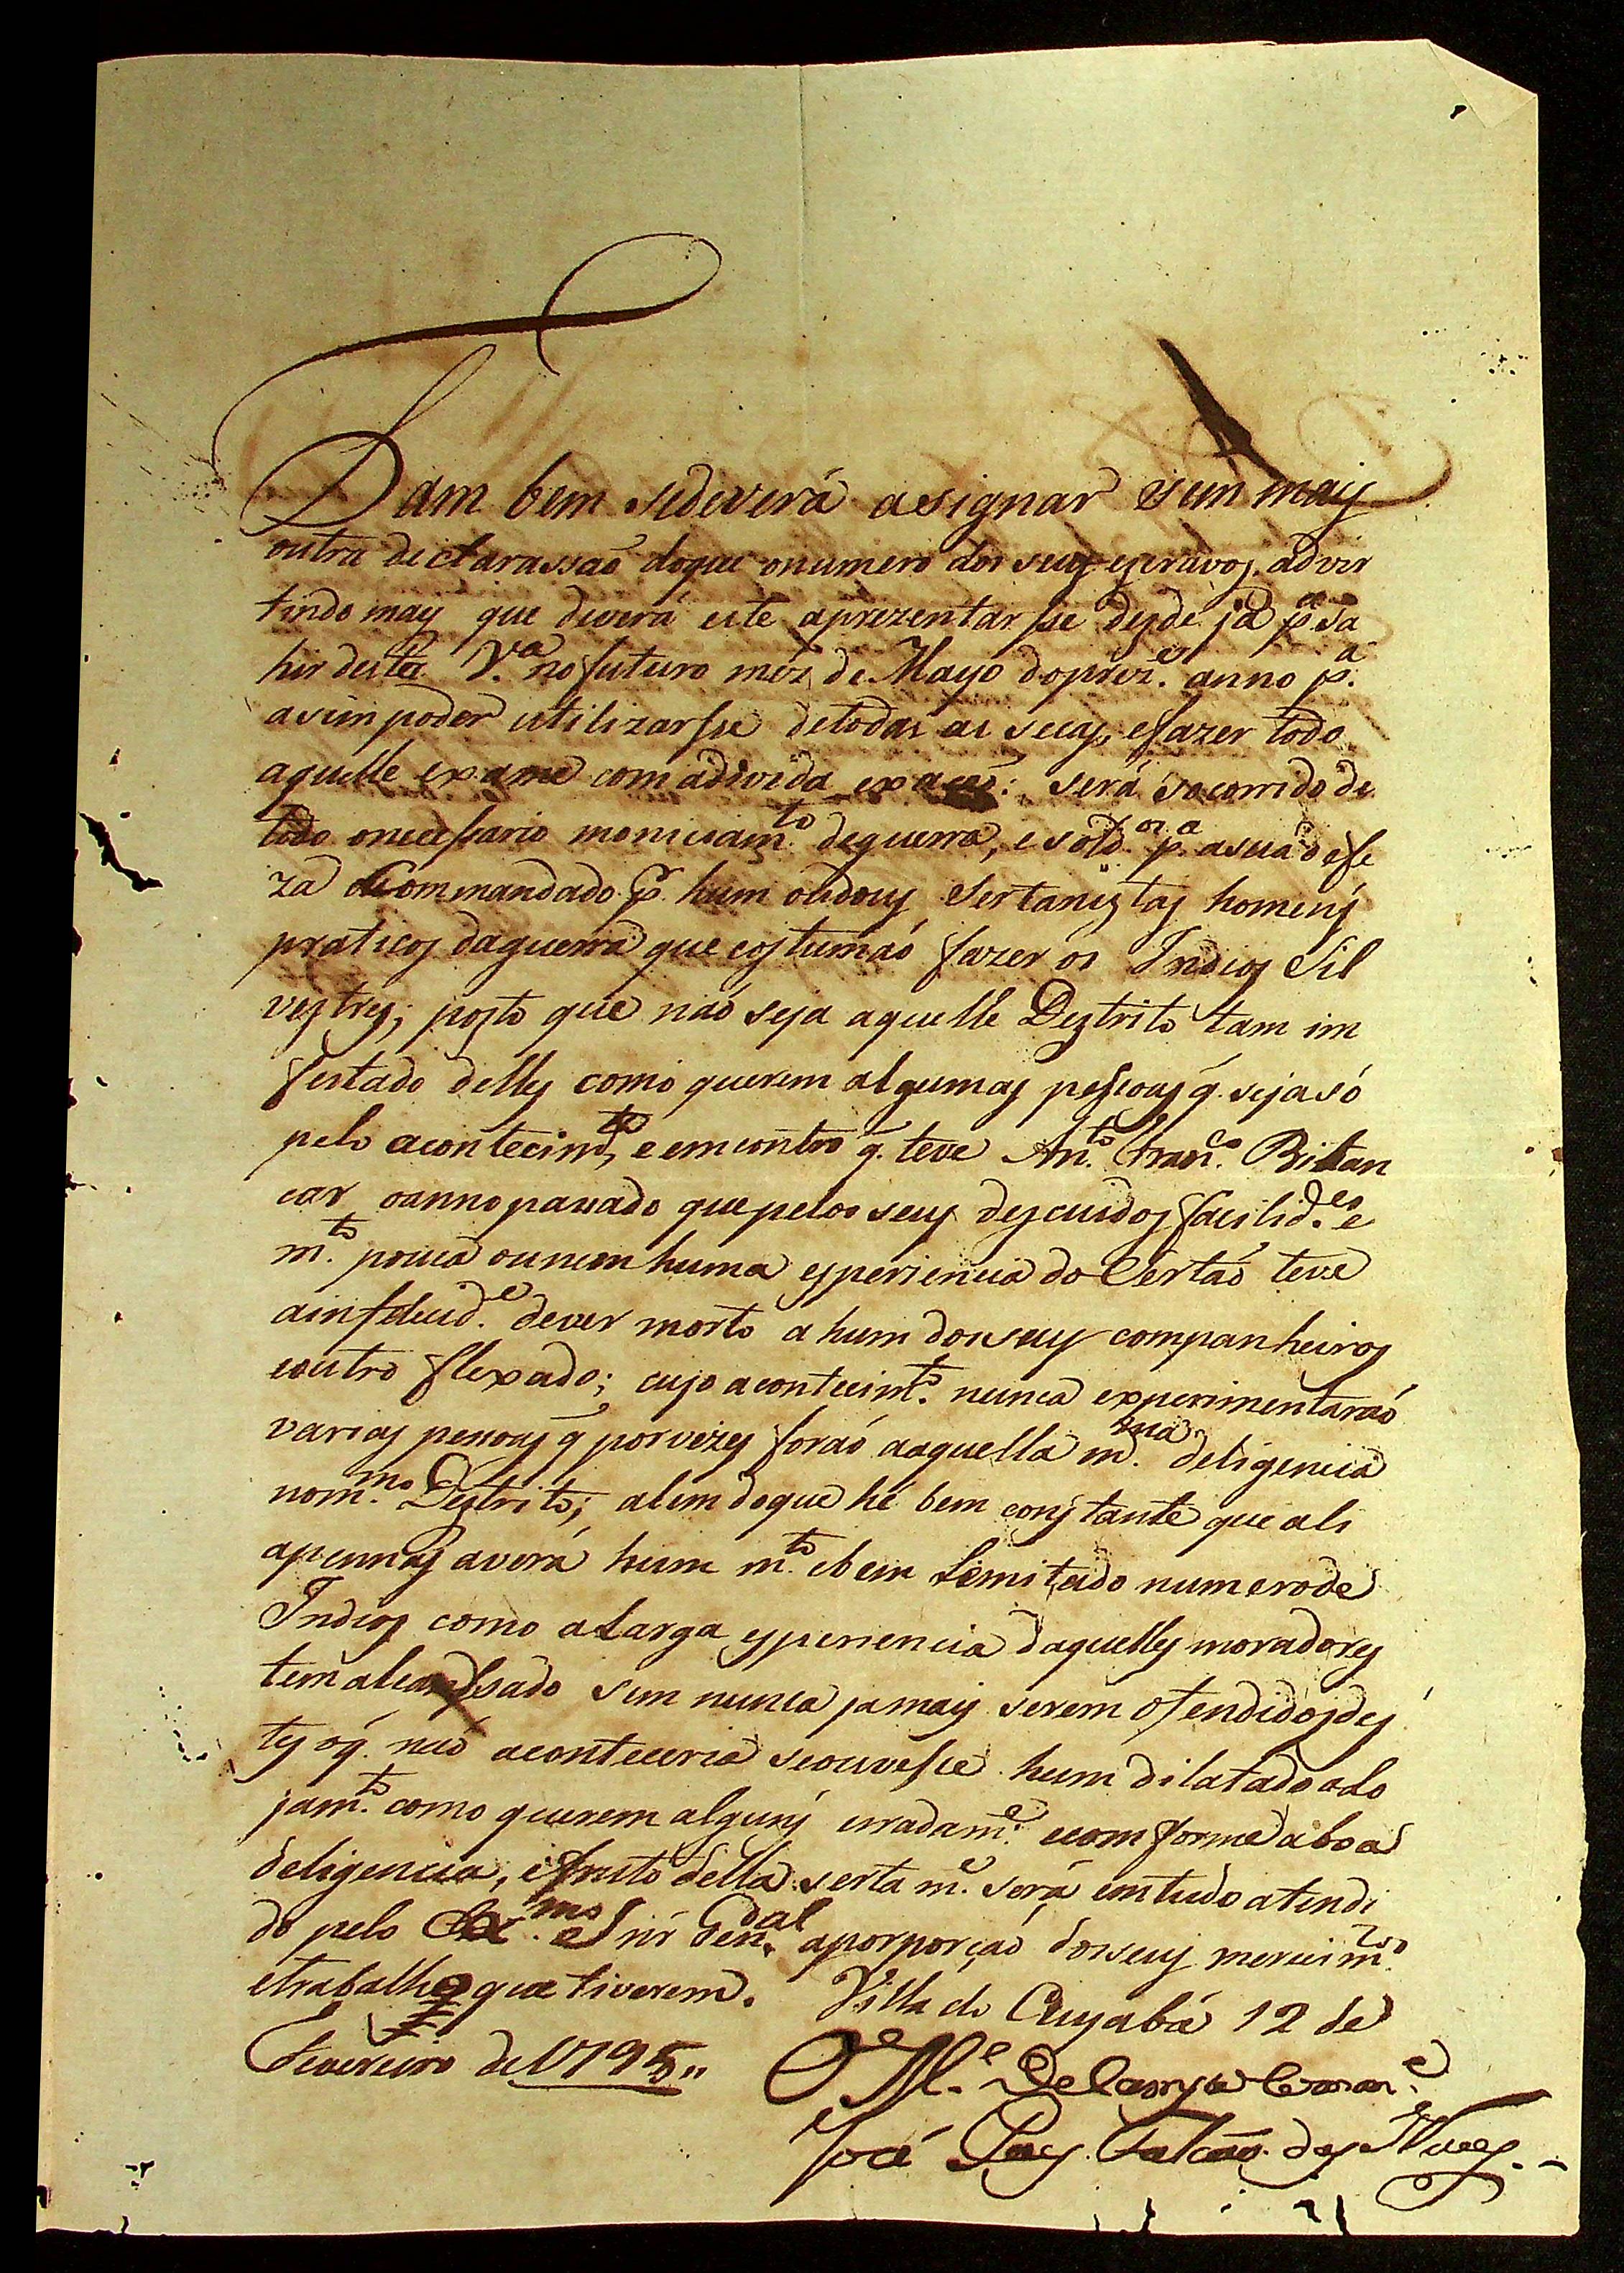 Tam bem sedeverá asignar sem mais
outra declarassaõ doque onumero dos seus escravos. advir
tindo mais que deverá este aprezentarsse desde já p.ª sa
hir desta V.ª no futuro mez de Mayo doprez.e anno p.ª
asim poder utilizarsse detodas as secas, efazer todo
aquelle exame com adivida exaçaõ: será socorrido de
todo onecessario moniciam.to deguerra, e sold.os p.ª asua defe
za Commandado p.r hum oudous Sertanistas homens
praticos daguerra que costumaõ fazer os Indios Sil
vestres; posto que naõ seja aquelle Destrito tam im
festado delles como querem algumas pessoas q. seja só
pelo acontecim.to, e emcontro q. teve An.to Fran.co Bitan
car oannopassado que pelos seus descuidos facilid.es e
m.to pouca ounem huma esperiencia do Certaõ teve
ainfelicid.e dever morto a hum dosseus companheiros
eoutro flexado; cujo acontecim.to nunca experimentaraõ
varias pessoas q porvezes foraõ aaquella m.ma deligencia
nom.mo Destrito; alem doque hé bem constante que ali
apennas averá hum m.to ebem Limitado numerode
Indios como aLarga esperiencia daquelles moradores
tem alcansado sem nunca jamais serem ofendidosdes
tes oq. naõ aconteceria seouvesse hum dilatado alo
jam.to como querem alguns erradam.e: ecomforme aboa
deligencia, efruto della serta m.e será emtudo atendi
do pelo Ex.mo Snr Gen.al aporporçaõ dosseus merecim.tos
etrabalho que tiverem. Villa do Cuyabá 12 de
Fevereiro de 1795,,
O M.e De Campo Com.e
José Paes Falcaõ das Neves.